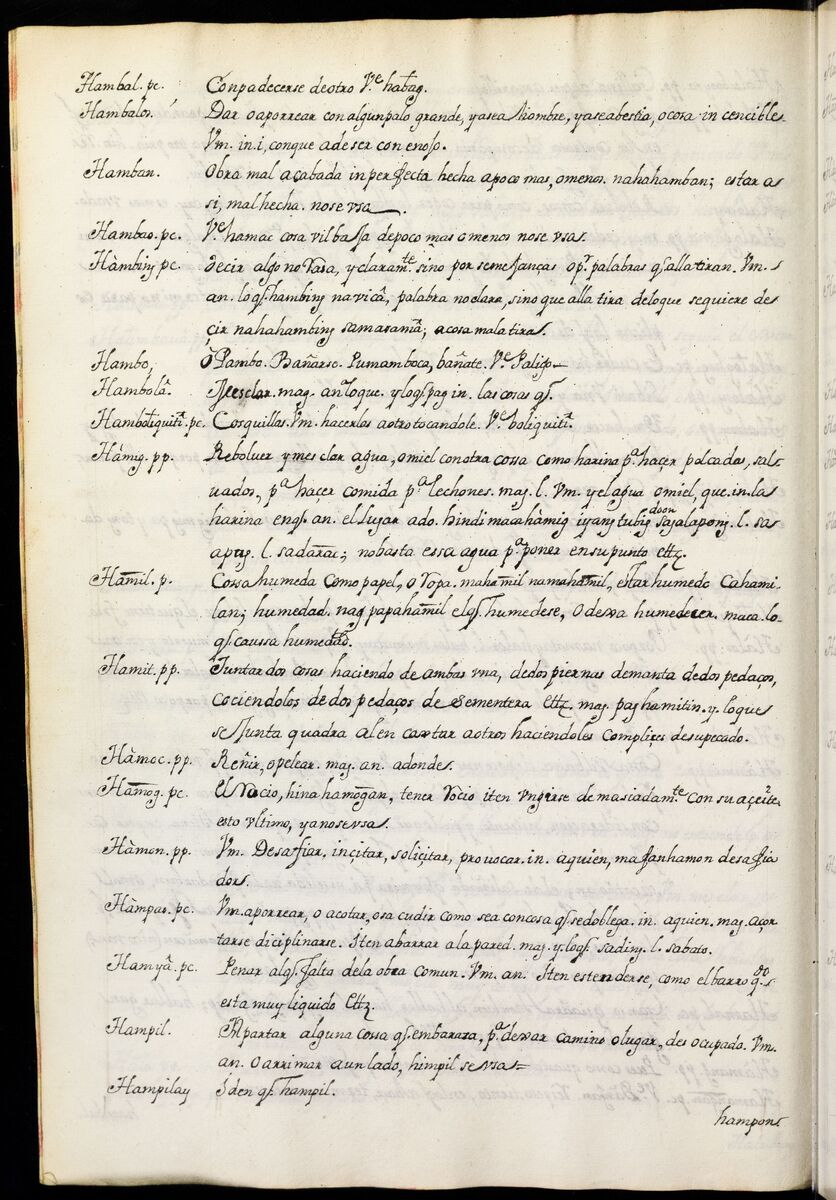 Hambal. pc. Conpadecerse deotro Vᵉ habag.
Hambalos. Dar o aporrear con algun palo grande, ya sea hombre, ya sea bestia, o cosa in cencibles
Vm. in. i, conque a de ser con enojo.
Hamban. Obra mal açabada inperfecta hecha apoco mas, o menos. nahahamban; estar a
si, mal hecha. no se vsa
Hambao. pc. Vᵉ hamac cosa vil baja de poco mas o menos no se vsa.
Hàmbing pc. decir algo no Rasa, y claramᵗᵉ sino por semejanças o pʳ palabras qͥ alla tiran. Vm.
an. lo qͥ hambing na vicâ, palabra no clara, sino que alla tira de loque se quiere de
çir nahahambing sa masamâ, a cosa mala tira.
Hambo, ô Pambo. Bañarse. Pumamboca, bañate. Vᵉ Paligo
Hambolâ. Mesclar. mag. anͣ loque. y lo qͥ pag in. las cosas qͥ.
Hamboliquitî. pc. Cosquillas. Vm. hacerlas a otro tocandole. Vᵉ boliquitî.
Hàmig. pp. Reboluer y mesclar agua, o miel con otra cossa como harina pᵃ hacer polcadas, sal
uados, pᵃ haçer comida pᵃ lechones. mag. l. Vm. y el agua o miel, que. in. la
harina enqͥ. an. el lugar ado. hindi macahàmig iyang tubig doon sa galapong. l. sa
apug. l. sa darac; no basta essa agua pᵃ poner en su punto ettᶻ.
Hamil. p. Cossa humeda como papel, o ropa. mahamil na mahamil, estar humedo cahami
lan; humedad. nag papahamil el qͥ humedese, o dexa humedecer. maca. lo
qͥ caussa humedad.
Hamit. pp. Juntar dos cosas haciendo de ambas vna, de dos piernas de manta de dos pedaços,
cociendolos de dos pedaços de sementera ettᶻ. mag. pag hamitin. y. lo que
se junta quadra al en cartar a otros haciendoles compliçes de su pecado.
Hàmoc. pp. Reñir, o pelear. mag. an. adonde.
Hamog. pc. el Rocio, hina hamogan, tener Rocio iten vngirse de masiadamᵗᵉ con su açeite
esto vltimo, ya no se vsa.
Hàmon. pp. Vm. Desafiar. inçitar, solicitar, prouocar. in. aquien, manhamon desafia
dor.
Hàmpas. pc. Vm. aporrear, o acotar, o sa cudir como sea con cosa qͥ se doblega. in. aquien. mag. açor
tarse diciplinarse. Iten abarrar ala pared. mag. y lo qͥ. sa ding. l. sa bato.
Hamyâ. pc. Penar al qͥ falta de la obra comun. Vm. an. Iten estenderse, como el barro qᵈᵒ
esta muy liquido ettᶻ.
Hampil. Apartar alguna cossa qͥ embaraza, pᵃ dexar camino o lugar, des ocupado. Vm.
an. o arrimar a un lado, himpil se vsa
Hampilay Iden qͥ hampil.
hampon